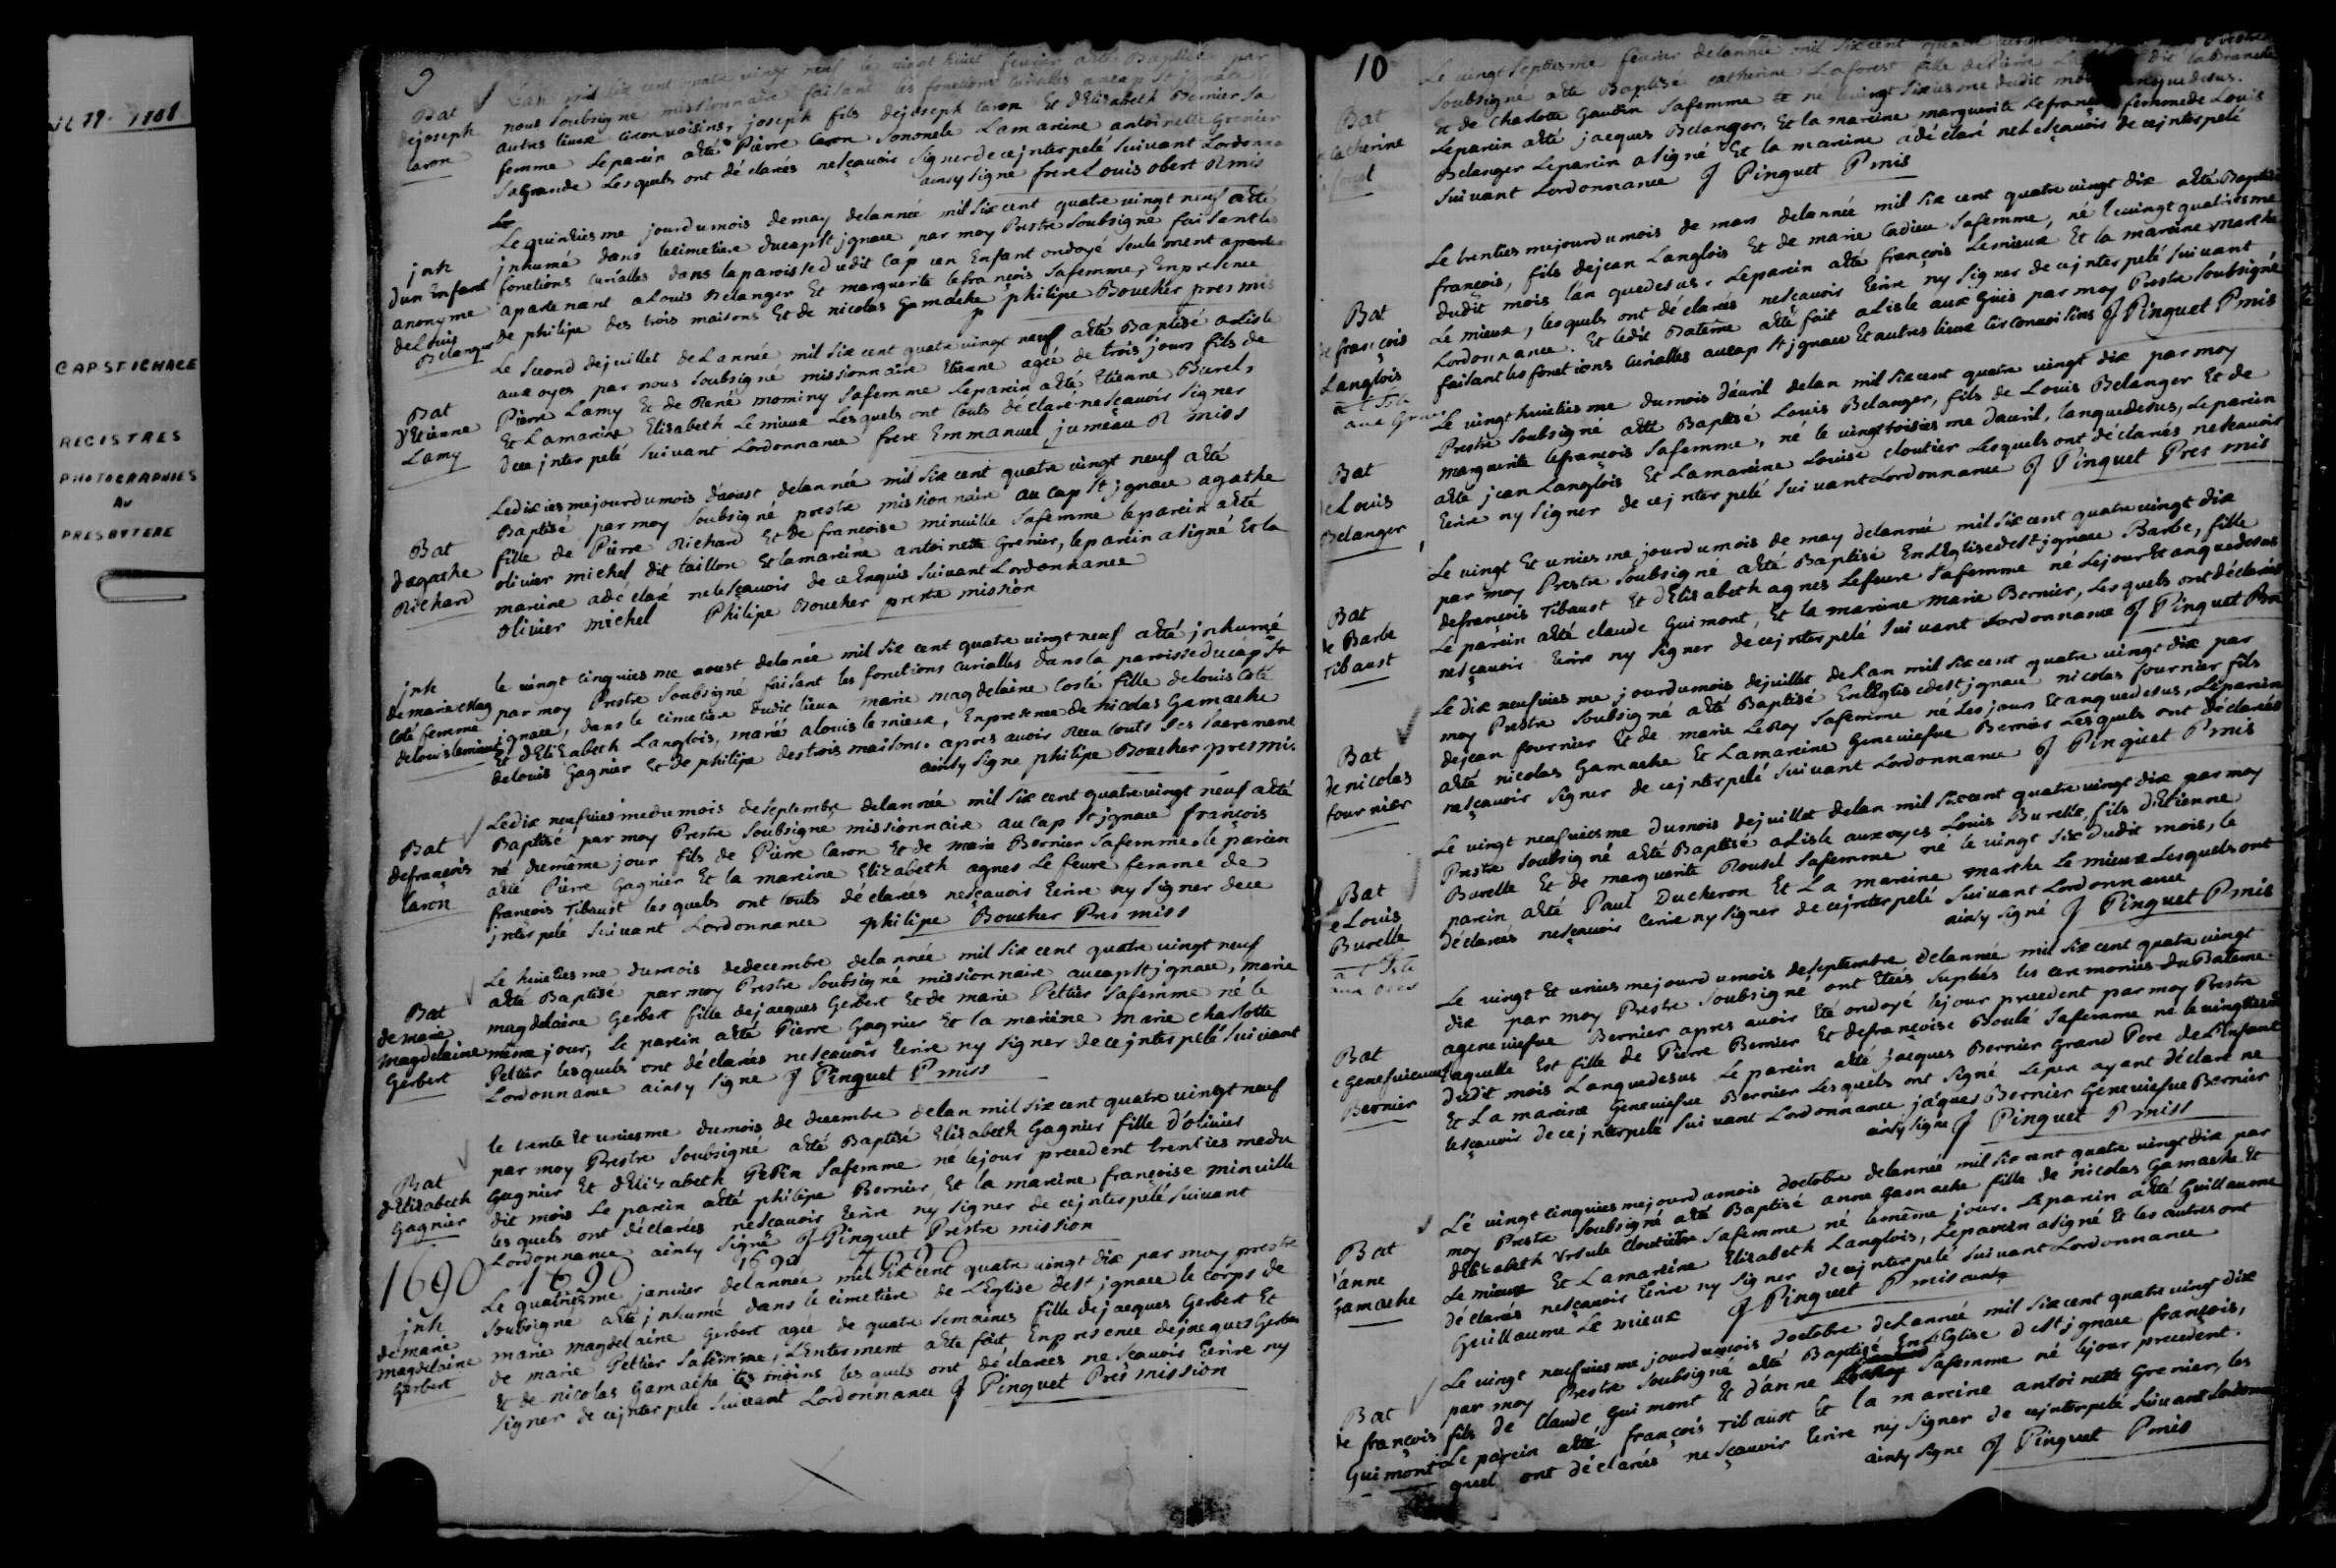 CAP ST IGNACE
REGISTRES
PHOTOGRAPHIES
AU
PRESBYTERE
9
Bat
de joseph
Caron
L'an mil six cent quatre vingt neuf le vingt huict fevrier a été Baptisé par
nous soubsigné missionnaire faisant les fonctions curialles au cap St jgnace &
autres lieux circonvoisins, joseph fils de joseph Caron Et d'Elizabeth Bernier sa
femme Le parein a été Pierre Caron son oncle La mareine antoinette Grenier
sa Grande Lesquels ont déclarés ne sçavoir signer de ce jnterpelé suivant Lordonna
ainsy signé frere Louis obert R mis
jnh
d'un Enfant
anonyme
de Louis
Belanger
Le quinziesme jour du mois de may de lannée mil six cent quatre vingt neuf a été
jnhumé dans le cimetiere du cap St jgnace par moy Prestre soubsigné faisant les
fonctions curialles dans la paroisse dudit Cap un Enfant ondoyé seulement
apartenant a Louis Belanger Et marguerite lefrançois sa femme, En presence
de philipe des trois maisons Et de nicolas Gamache philipe Boucher pres mis
Bat
d'Etienne
Lamy
Le second de juillet de Lannée mil six cent quatre vingt neuf a été Baptisé a Lisle
aux oyes par nous soubsigné missionnaire Etienne agée de trois jours fils de
Pierre Lamy Et de René mominy sa femme Le parein a été Etienne Burel,
Et La mareine Elisabeth Le mieux Lesquels ont touts déclaré ne sçavoir signer
de ce jnterpelé suivant Lordonnance frere Emmanuel jumeau R miss
Bat
d'agathe
Richard
Le dixiesme jour du mois d'aoust de lannée mil six cent quatre vingt neuf a été
Baptisé par moy soubsigné prestre missionnaire au cap St jgnace agathe
fille de Pierre Richard Et de françoise minville sa femme le parein a été
olivier michel dit taillon Et la mareine antoinette Grenier, le parein a signé Et la
mareine a déclaré ne le sçavoir de ce Enquis suivant Lordonnance
olivier michel Philipe Boucher prestre mission
jnh
de marie Mag
Coté femme
de louis lemieux
le vingt cinquiesme aoust de lanée mil six cent quatre vingt neuf a été jnhumé
par moy Prestre soubsigné faisant les fonctions Curialles dans la paroisse du cap St
jgnace, dans le cimetiere dudit lieux marie magdelaine Costé fille de louis Coté
Et d'Elizabeth Langlois, marié a louis le mieux, En presence de nicolas Gamache
de louis Gagnier Et de philipe des trois maisons. apres avoir Receu touts ses sacrement
ainsy signe philipe Boucher pres mis.
Bat
de françois
Caron
Le dix neufviesme du mois de septembre de lannée mil six cent quatre vingt neuf a été
Baptisé par moy Prestre soubsigne missionnaire au Cap St jgnace françois
né du même jour fils de Pierre Caron Et de marie Bernier sa femme. le parien
a été Pierre Gagnier Et la mareine Elizabeth agnes Le feure femme de
francois Tibaust lesquels ont touts déclarés ne sçavoir Ecrire ny signer de ce
jnterpelé suivant Lordonnance philipe Boucher Pres miss
Bat
de marie
magdelaine
Gerbert
Le huictiesme du mois de decembre de lannée mil six cent quatre vingt neuf
a été Baptisé par moy Prestre soubsigné missionnaire au cap St jgnace, marie
magdelaine Gerbert fille de jacques Gerbert Et de marie Peltier sa femme né le
même jour, Le parein a été Pierre Gagnier Et la mareine marie charlotte
Peltier lesquels ont déclarés ne sçavoir Ecrire ny signer de ce jnterpelé suivant
Lordonnance ainsy signe J Pinguet P miss
Bat
d'Elizabeth
Gagnier
le trente Et uniesme du mois de decembre de lan mil six cent quatre vingt neuf
par moy Prestre soubsigné a été Baptisé Elizabeth Gagnier fille d'olivier
Gagnier Et d'Elizabeth Pepin sa femme né le jour precedent trentiesme du
dit mois Le parein a été philipe Bernier, Et la mareine françoise minville
lesquels ont déclarés ne sçavoir Ecrire ny signer de ce jnterpelé suivant
Lordonnance ainsy signé J Pinguet Prestre mission
1690 1690 1690 1690
jnh
de marie
magdelaine
Gerbert
Le quatriesme janvier de lannée mil six cent quatre vingt dix par moy prestre
soubsigné a été jnhumé dans le cimetiere de L'Eglise de St jgnace le corps de
marie magdelaine Gerbert agée de quatre semaines fille de jacques Gerbert Et
de marie Peltier sa femme, L'Enterment a été fait En presence de jacques Gerber
Et de nicolas Gamache tesmoins lesquels ont déclarés ne sçavoir Ecrire ny
signer de ce jnterpelé suivant Lordonnance J Pinguet Pres mission
10
Bat
catherine
Le vingt septiesme fevrier de lannée mil six cent quatre
soubsigné a été Baptisé catherine Laforest fille de Pierre dit la Branche
Et de Charlotte Gaudin sa femme né le vingt sixiesme dudit mois que desus.
Le parein a été jacques Belanger, Et la mareine marguerite Lefrançois femme de Louis
Belanger Le parein a signé Et la mareine a déclaré ne le sçavoir de ce jnterpelé
suivant Lordonnance J Pinguet P mis
Bat
de françois
Langlois
a l'Isle
aux Grues
Le trentiesme jour du mois de mars de lannée mil six cent quatre vingt dix a été Baptisé
françois, fils de jean Langlois Et de marie Cadieu sa femme, né le vingt quatriesme
dudit mois l'an que desus. Le parein a été françois Lemieux Et la mareine marthe
Le mieux, lesquels ont déclarés ne sçavoir Ecrire ny signer de ce jnterpelé suivant
Lordonnance. Et ledit Bateme a été fait a Lisle aux Grües par moy Prestre soubsigné
faisant les fonctions Curialles au cap St jgnace Et autres lieux circonvoisins J Pinguet P mis
Bat
de Louis
Belanger
Le vingt huictiesme du mois d'avril de lan mil six cent quatre vingt dix par moy
Prestre soubsigné a été Baptisé Louis Belanger, fils de Louis Belanger Et de
marguerite lefrançois sa femme, né le vingt troisiesme d'avril, l'an que desus, Le parein
a été jean Langlois Et La mareine Louise cloutier Lesquels ont déclarés ne sçavoir
Ecrire ny signer de ce jnterpelé suivant Lordonnance J Pinguet Pres mis
Bat
de Barbe
Tibaust
Le vingt Et uniesme jour du mois de may de lannée mil six cent quatre vingt dix
par moy Prestre soubsigné a été Baptisé En L'Eglise de St jgnace Barbe, fille
de françois Tibaust Et d'Elizabeth agnes Lefeure sa femme né Le jour Et an que desus
Le parein a été claude Guimont, Et la mareine marie Bernier, Lesquels ont déclarés
ne sçavoir Ecrire ny signer de ce jnterpelé suivant Lordonnance J Pinguet Pm
Bat
de nicolas
fournier
Le dix neufviesme jour du mois de juillet de L'an mil six cent quatre vingt dix par
moy Prestre soubsigné a été Baptisé En L'Eglise de St jgnace nicolas fournier fils
de jean fournier Et de marie LeRoy sa femme né Les jours Et an que desus, Le parein
a été nicolas Gamache Et La mareine Geneviefve Bernier Lesquels ont déclarés
ne sçavoir signer de ce jnterpelé suivant Lordonnance J Pinguet P mis
Bat
e Louis
Burelle
a l'Isle
aux oies
Le vingt neufviesme du mois de juillet de lan mil six cent quatre vingt dix par moy
Prestre soubsigné a été Baptisé a Lisle aux oyes Louis Burelle, fils d'Etienne
Burelle Et de marguerite Rousel sa femme né le vingt six dudit mois, le
parein a été Paul Ducheron Et La mareine marthe Le mieux Lesquels ont
déclarés ne sçavoir Ecrire ny signer de ce jnterpelé suivant Lordonnance
ainsy signé J Pinguet P mis
Bat
e Genefvieve
Bernier
Le vingt Et uniesme jour du mois de septembre de lannée mil six cent quatre vingt
dix par moy Prestre soubsigné ont Etés supléés les ceremonies du Bateme
a geneviefve Bernier apres avoir Eté ondoyé le jour precedent par moy Prestre
Laquelle Est fille de Pierre Bernier Et de françoise Boulé sa femme né le vingtiesme
dudit mois L'an que desus Le parein a été jacques Bernier Grand Pere de L'Enfant
Et La mareine Geneviefve Bernier Lesquels ont signé Le pere ayant déclaré ne
le sçavoir de ce jnterpelé suivant Lordonnance jacques Bernier Geneviefve Bernier
ainsy signe J Pinguet P miss
Bat
d'anne
Gamache
Le vingt cinquiesme jour du mois d'octobre de lannée mil six cent quatre vingt dix par
moy Prestre soubsigné a été Baptisé anne Gamache fille de nicolas Gamache Et
d'Elizabeth Ursule Cloutier sa femme né le même jour. Le parein a été Guillaume
Le mieux Et La mareine Elizabeth Langlois, Le parein a signé Et les autres ont
déclarés ne sçavoir Ecrire ny signer de ce jnterpelé suivant Lordonnance
Guillaume Le mieux J Pinguet P mis
Bat
de françois
Guimont
Le vingt neufviesme jour du mois d'octobre de Lannée mil six cent quatre vingt dix
par moy Prestre soubsigné a été Baptisé En L'Eglise de St jgnace françois,
fils de Claude Guimont Et d'anne sa femme né le jour precedent.
Le parein a été françois Tibaust Et la mareine antoinette Grenier, les
quels ont déclarés ne sçavoir Ecrire ny signer de ce jnterpelé suivant Lordonn
ainsy signe J Pinguet P mis